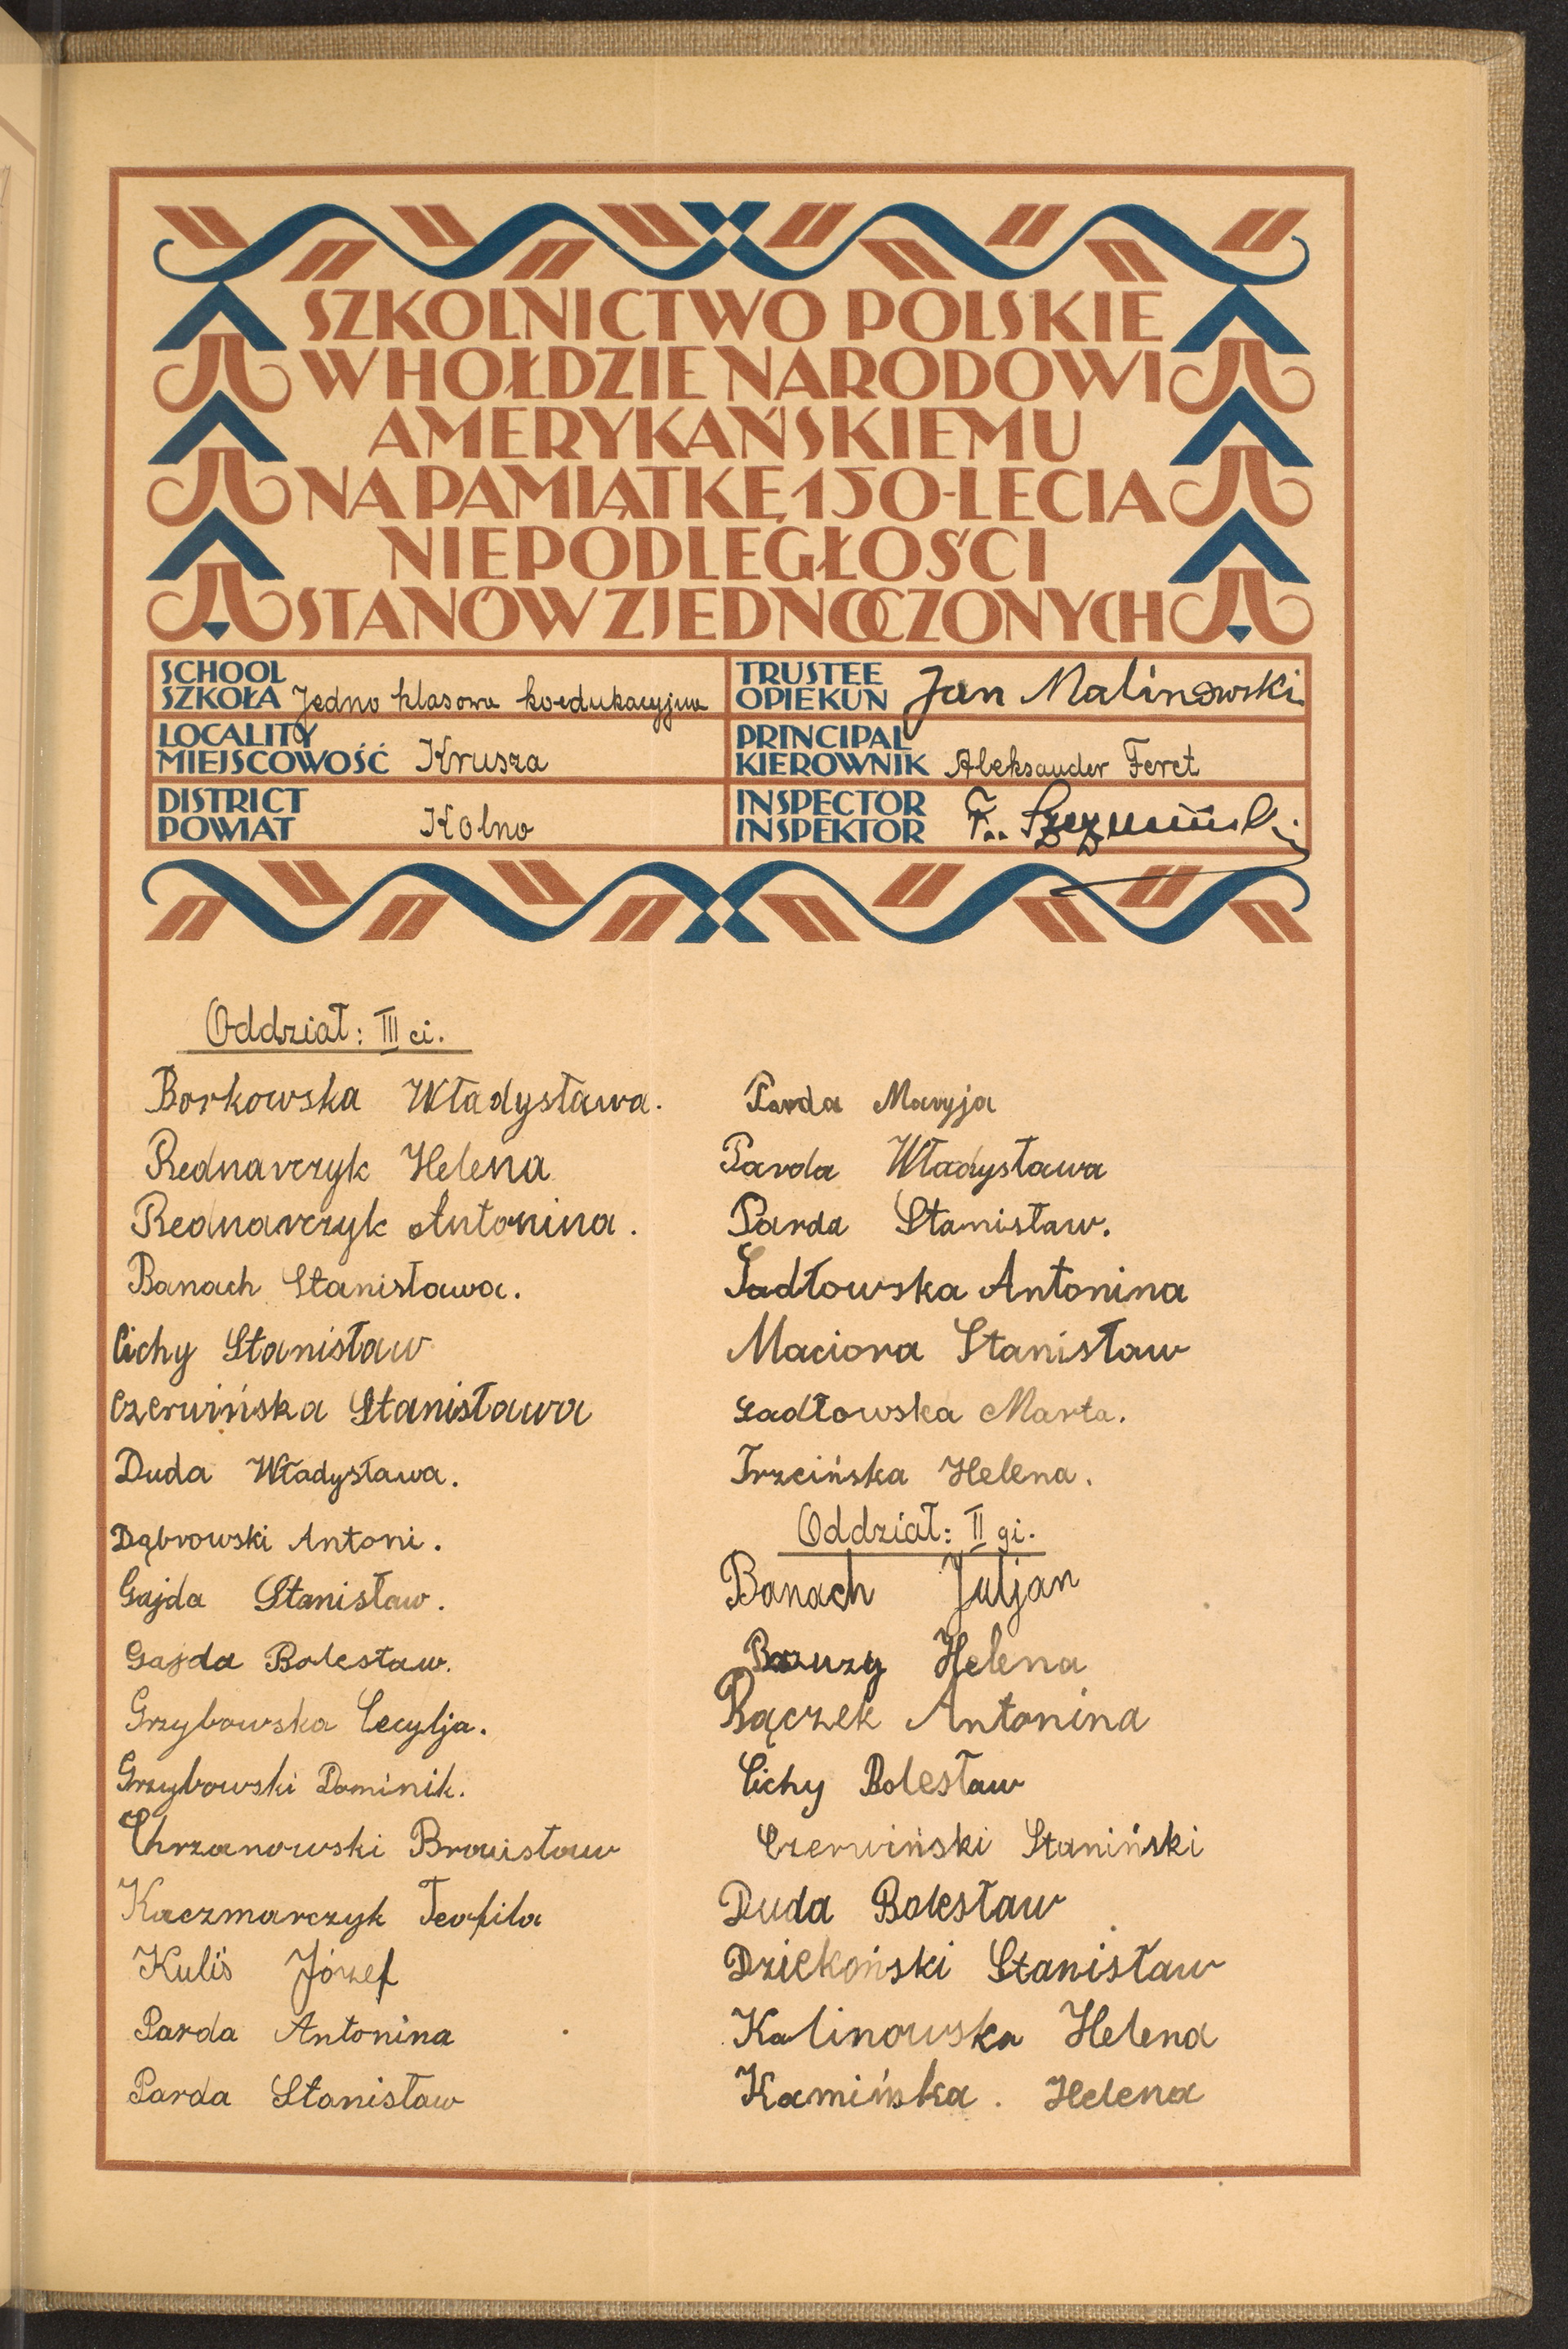 SZKOLNICTWO POLSKIE
W HOŁDZIE NARODOWI
AMERYKAŃSKIEMU
NA PAMIĄTKĘ 150-LECIA
NIEPODLEGŁOŚCI
STANÓW ZJEDNOCZONYCH
SCHOOL
SZKOŁA Jedno klasowa koedukacyjna
TRUSTEE
OPIEKUN Jan Malinowski
LOCALITY
MIEJSCOWOŚĆ Krusza
PRINCIPAL
KIEROWNIK Aleksander Feret
DISTRICT
POWIAT Kolno
INSPECTOR
INSPEKTOR F.
Oddział: III ci.
Borkowska Władysława.
Rednarczyk Helena
Rednarczyk Antonina.
Banach Stanisława.
Cichy Stanisław
Czerwińska Stanisława
Duda Władysława.
Dąbrowski Antoni.
Gajda Stanisław.
Gajda Bolesław.
Grzybowska Cecylja.
Grzybowski Dominik.
Chrzanowski Bronisław
Kaczmarczyk Teofila
Kuliś Józef
Parda Antonina
Parda Stanisław
Parda Maryja
Parda Władysława
Parda Stanisław.
Sadłowska Antonina
Maciora Stanisław
Sadłowska Marta.
Trzcińska Helena.
Oddział: II gi.
Banach Juljan
Helena
Bączek Antonina
Cichy Bolesław
Czerwiński Staniński
Duda Bolesław
Dziekoński Stanisław
Kalinowska Helena
Kamińska. Helena